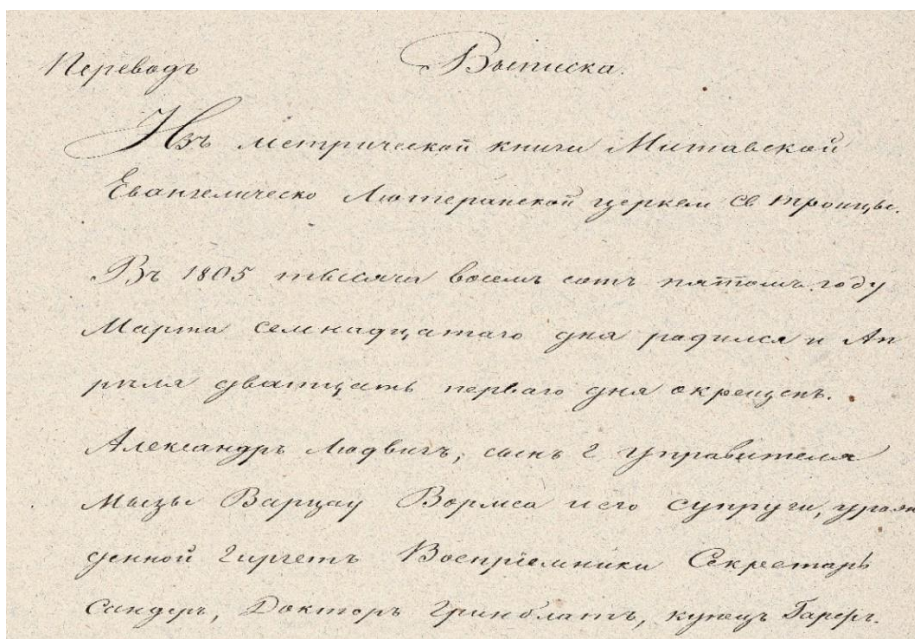 Переводъ Выписка.
Изъ метрической книги Митавской
Евангелическо Лютеранской церкви Св. Троицы.
Въ 1805 тысяча восемь сотъ пятомъ году
Марта семнадцатаго дня родился и Ап
рѣля дватцать перваго дня окрещенъ.
Александръ Людвигъ, сынъ Г. Управителя
Мызы Варцау Вормса и его супруги, урож
денной Гиргетъ Воспріемники Секретарь
Сандеръ, Докторъ Гринблатъ, купецъ